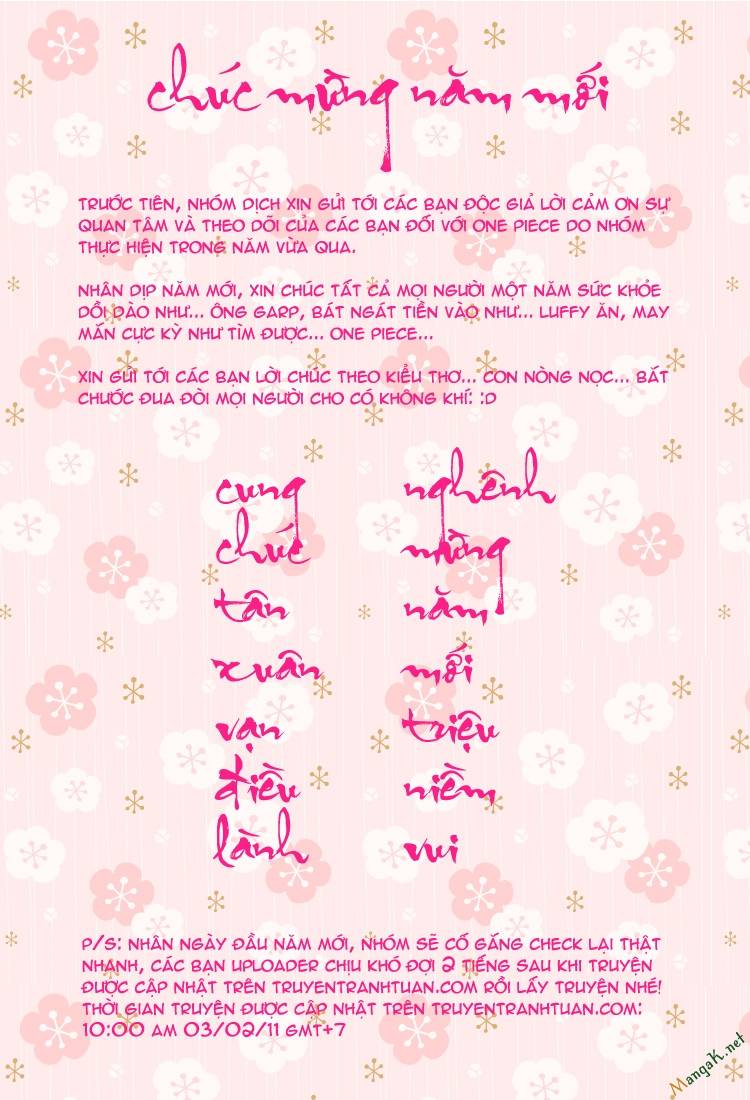 chúc mừng năm mới
TRƯỚC TIÊN, NHÓM DỊCH XIN GỬI TỚI CÁC BẠN ĐỘC GIẢ LỜI CẢM ƠN SỰ
QUAN TÂM VÀ THEO DÕI CỦA CÁC BẠN ĐỐI VỚI ONE PIECE DO NHÓM
THỰC HIỆN TRONG NĂM VỪA QUA.
NHÂN DỊP NĂM MỚI, XIN CHÚC TẤT CẢ MỌI NGƯỜI MỘT NĂM SỨC KHỎE
DỒI DÀO NHƯ... ÔNG GARP, BÁT NGÁT TIỀN VÀO NHƯ... LUFFY ĂN, MAY
MẮN CỰC KỲ NHƯ TÌM ĐƯỢC... ONE PIECE...
XIN GỬI TỚI CÁC BẠN LỜI CHÚC THEO KIỂU THƠ... CON NÒNG NỌC... BẮT
CHƯỚC ĐUA ĐÒI MỌI NGƯỜI CHO CÓ KHÔNG KHÍ: :D
cung nghênh
chúc mừng
tân năm
xuân mới
vạn triệu
điều niềm
lành vui
P/S: NHÂN NGÀY ĐẦU NĂM MỚI, NHÓM SẼ CỐ GẮNG CHECK LẠI THẬT
NHANH, CÁC BẠN UPLOADER CHỊU KHÓ ĐỢI 2 TIẾNG SAU KHI TRUYỆN
ĐƯỢC CẬP NHẬT TRÊN TRUYENTRANHTUAN.COM RỒI LẤY TRUYỆN NHÉ!
THỜI GIAN TRUYỆN ĐƯỢC CẬP NHẬT TRÊN TRUYENTRANHTUAN.COM:
10:00 AM 03/02/11 GMT+7
MangaK.net